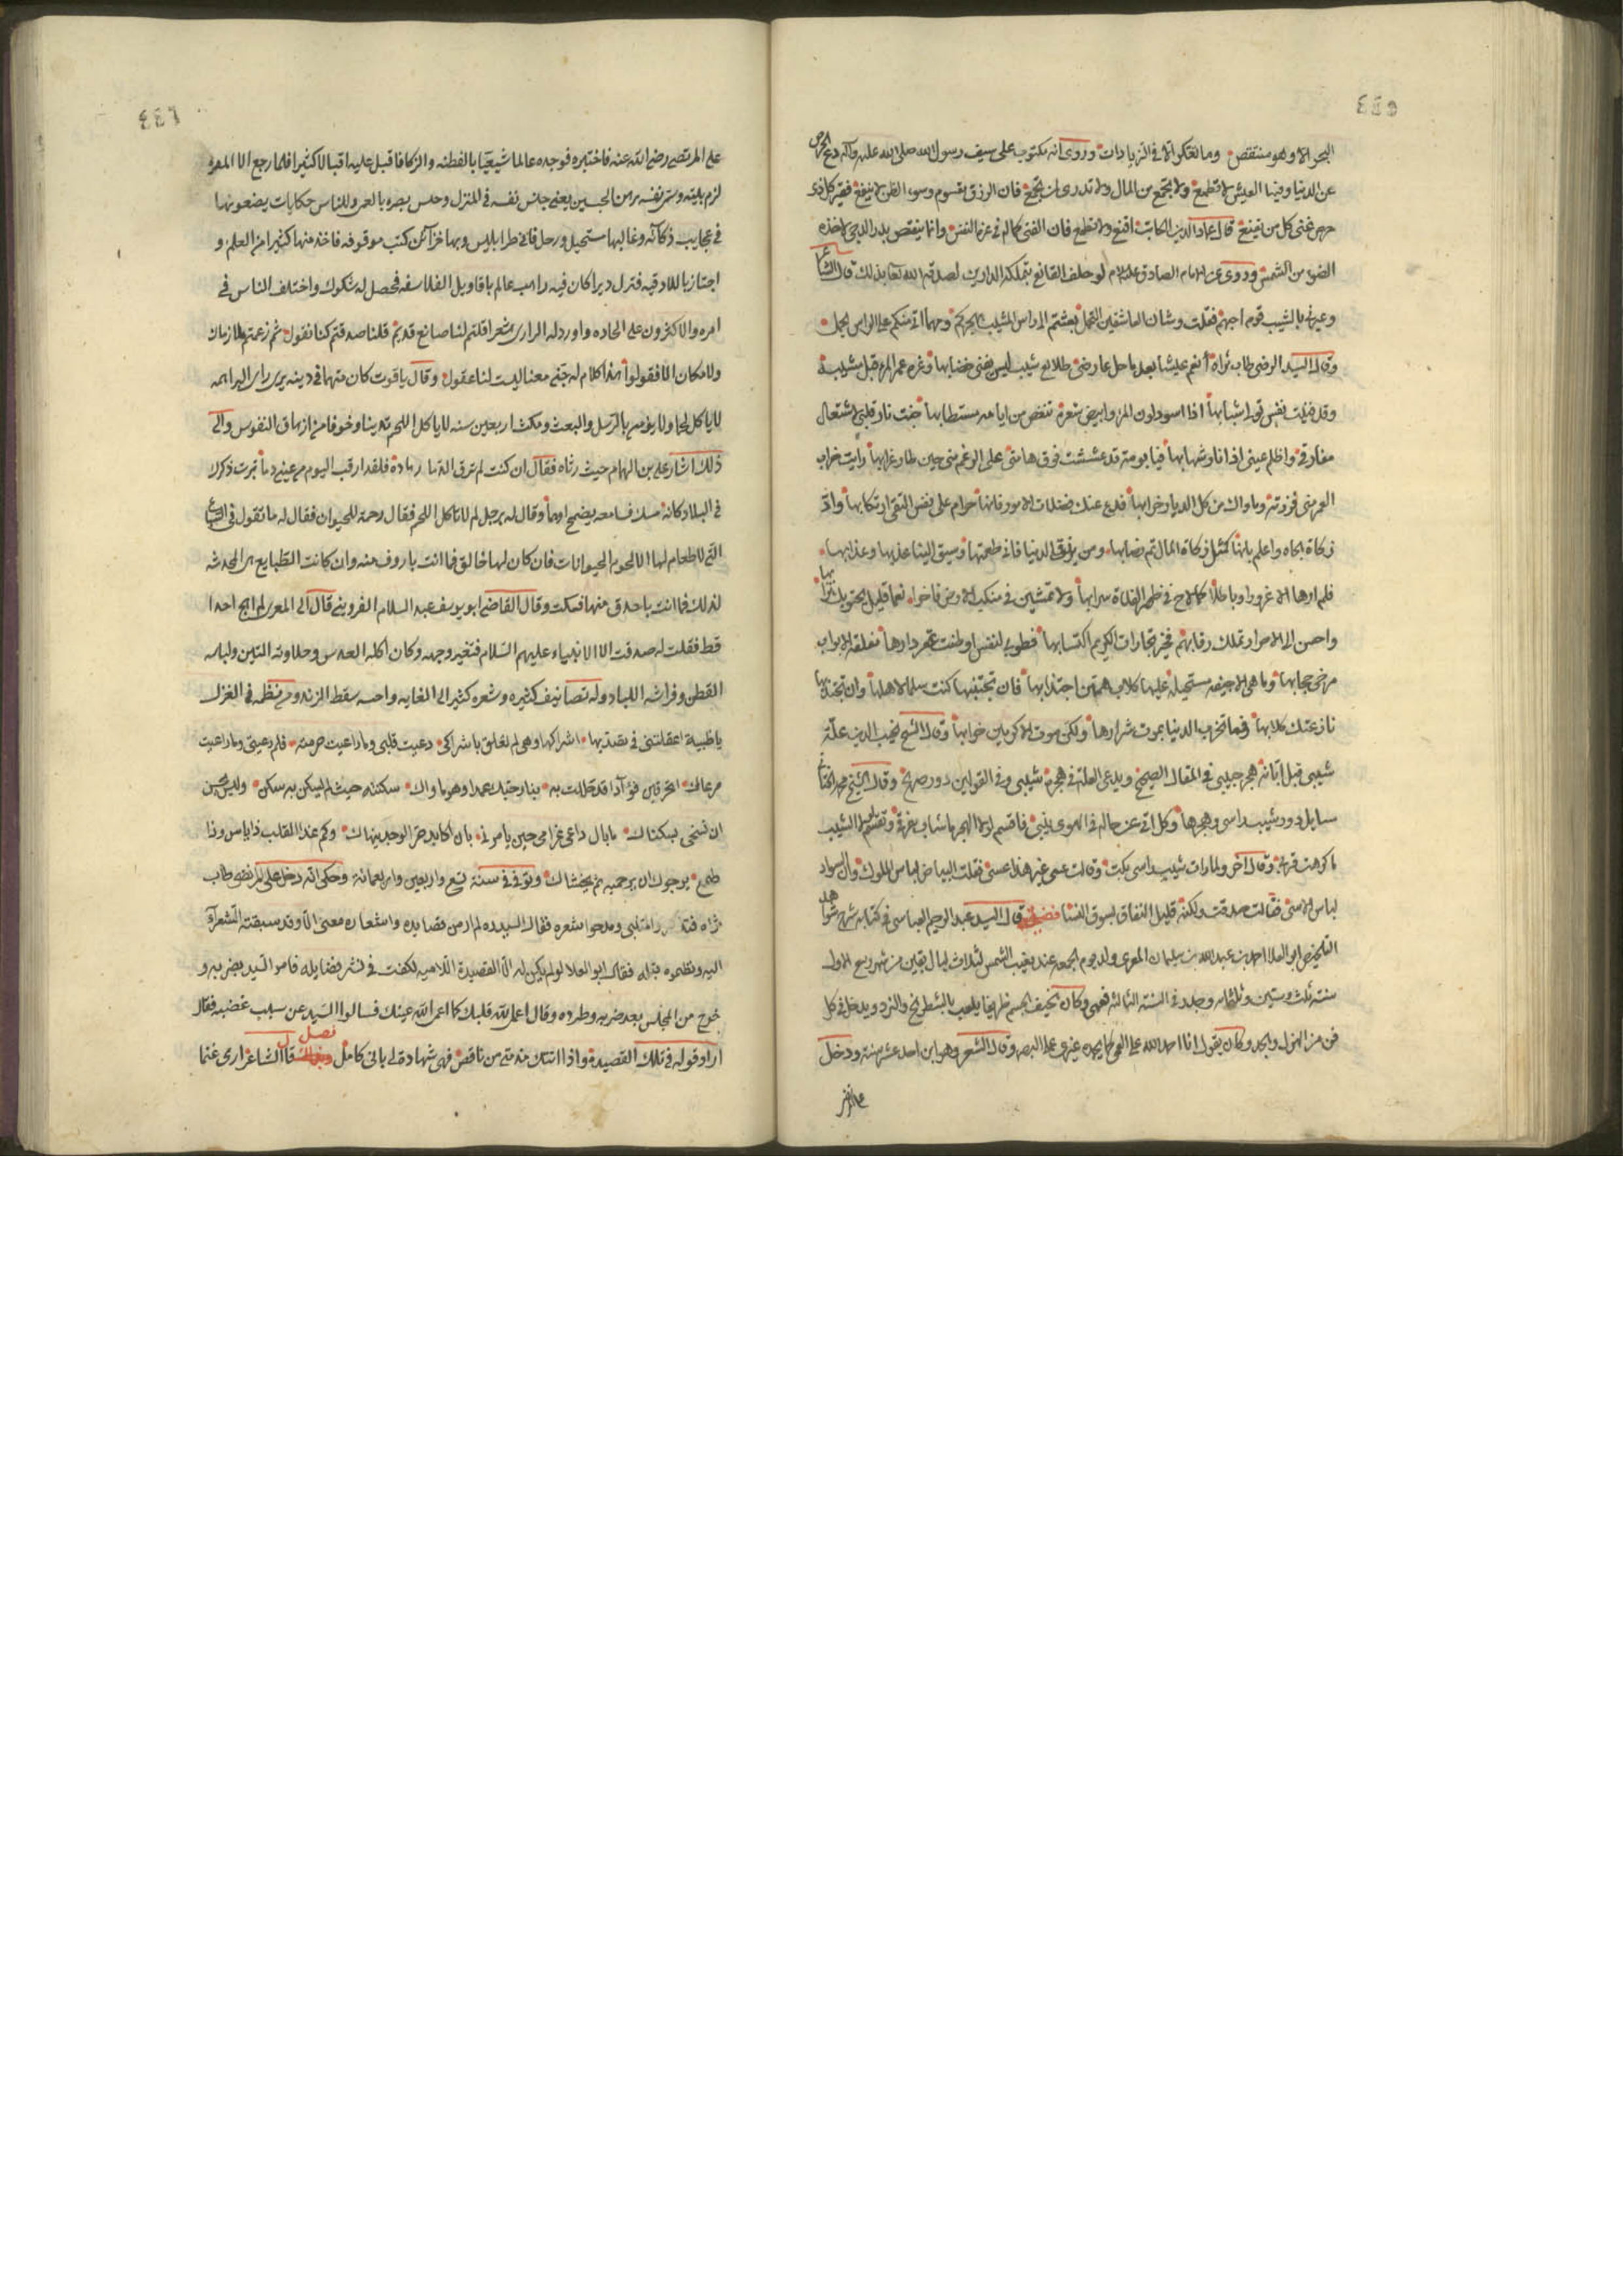 ٤٤٥
البحر الا وهو منتقص وما تفكر الا في الزيادات وروى انه مكتوب على سيف رسول الله صلى الله عليه وآله دع الحرص
عن الدنيا وفيها العيش لا تطمع ولا تجمع من المال ولا تدرى لمن تجمع فان الرزق مقسوم وسوء الظن لا ينفع فقير كل ذى
حرص غنى كل من يقنع قال عماد الدين الكاتب اقنع ولا تطمع فان الفتى كماله في عزة النفس وانما ينقص بدر الدجى لاخذه
الضوء من الشمس وروى عن الامام الصادق عليه السلام لو حلف القانع بتملكه الدارين لصدقه الله تعالى بذلك قال الشاعر
وعيرنى بالشيب قوم احبهم فقلت وشان العاشقين التحمل بعثتم الى راس المشيب بهجركم ومهما اتى منكم على الراس يحمل
وقال السيد الرضى طاب ثراه أنعم عيشا بعد ما حل عارضى طلايع شيب ليس يغنى خضابها وغرة عمر المرء قبل مشيبه
وقد فنيت نفس تولى شبابها اذا اسود لون المرء وابيض شعره تنغص من ايامه مستطابها خبت نار قلبى باشتعال
مفارقى واظلم عينى اذ اناء شهابها فيا بومة قد عششت فوق هامتى على الرغم منى حين طار غرابها رايت خراب
العمر منى فزرتنى وماواك من كل الديار خرابها فدع عنك فضلات الامور فانها حرام على نفس التقى ارتكابها واد
زكاة الجاه واعلم بانها كمثل زكاة المال تم نصابها ومن يذق الدنيا فانى طعمتها وسيق الينا عذبها وعذابها
فلم ارها الا غرورا وباطلا كما لاح في ظهر الفلاة سرابها ولا تمشين في منكب الارض فاخرا فعما قليل يحتويك ترابها
واحسن الى الاحرار تملك رقابهم فخير تجارات الكريم اكتسابها فطوبى لنفس اوطنت قعر دارها مغلقة الابواب
مرخى حجابها وما هى الا جيفه مستحيلة عليها كلاب همهن اجتذابها فان تجتنبها كنت سلما لاهلها وان تجتذبها
نازعتك كلابها فما تخرب الدنيا بموت شرارها ولكن موت الاكرمين خرابها وقال الشيخ نجيب الدين علة
شيبى قبل ابانه هجر حبيبى في المقال الصحيح ويدعى العلة في هجره شيبى وفي القولين دور صريح وقال الشيخ محمد الحتاتى
سايل دور شيب راسى وهجرها وكل اتى عن حاله في الهوى ينبى فاقسم لولا الهجر ما شاب مفرقى وتقسم لولا الشيب
ما كرهت قربى وقال اخر ولما رات شيب راسى بكت وقالت عسى غير هذا عسى فقلت البياض لباس الملوك وان السواد
لباس الاسى فقالت صدقت ولكنه قليل النفاق بسوق النسا فصل قال السيد عبد الرحيم العباسى في كتابه شرح شواهد
التلخيص ابو العلا احمد بن عبد الله بن سليمان المعرى ولد يوم الجمعه عند مغيب الشمس لثلاث ليال بقين من شهر ربيع الاول
سنة ثلث وستين وثلثمائه وجدر في السنة الثالثه فعمى وكان نحيف الجسم ظريفا يلعب بالشطرنج والنرد ويدخل في كل
فن من الهزل والجد وكان يقول انا احمد الله على العمى كما يحمده غيرى على البصر وقال الشعر وهو ابن احد عشر سنة ودخل
على المر
٤٤٦
على المرتضى رضى الله عنه فاختبره فوجده عالما شيعيا بالفطنه والزكا فاقبل عليه اقبالا كثيرا فلما رجع الى المعره
لزم بيته وسمى نفسه رهن الحبسين يعنى حبس نفسه في المنزل وحبس بصره بالعمى وللناس حكايات يضعونها
في عجايب ذكائه وغالبها مستحيل ورحل فاتى طرابلس وبها خزآئن كتب موقوفه فاخذ منها كثيرا من العلم و
اجتاز باللادقيه فنزل ديرا كان فيه راهب عالم باقاويل الفلاسفه فحصل له شكوك واختلف الناس في
امره والاكثرون على الحاده واورد له الرازى شعرا قلتم لنا صانع قديم قلنا صدقتم كذا نقول ثم زعمتم بلا زمان
ولا مكان الا فقولوا هذا كلام له خبى معناه ليست لنا عقول وقال ياقوت كان متهما في دينه يرى راى البراهمه
لا ياكل لحما ولا يؤمن بالرسل والبعث ومكث اربعين سنه لا ياكل اللحم تدينا وخوفا من ازهاق النفوس والى
ذلك اشار على بن الهمام حيث رثاه فقال ان كنت لم ترق الدما زهادة فلقد ارقت اليوم من عينى دما سيرت ذكرك
في البلاد كانه مسك فسامعه يضمخ او فما وقال له رجل لم لا تاكل اللحم فقال رحمة للحيوان فقال له ما تقول في السباع
التى لا طعام لها الا لحوم الحيوانات فان كان لها خالق فما انت باروف منه وان كانت الطبايع هى المحدثه
لذلك فما انت باحذق منها فسكت وقال القاضى ابو يوسف عبد السلام القزوينى قال الى المعرى لم اهج احدا
قط فقلت له صدقت الا الانبياء عليهم السلام فتغير وجهه وكان اكله العدس وحلاوته التين ولباسه
القطن وفراشه اللباد وله تصانيف كثيره وشعره كثير الى الغايه واحسنه سقط الزند ومن نظمه في الغزل
ياظبية اعقلتنى في تصيدها اشراكها وهى لم تعلق باشراكى رعيت قلبى وما راعيت حرمته فلم رعيتى وما راعيت
مرعاك اتحرقين فؤآدا قد حللت به بنار حبك عمدا وهو ماواك سكنته حيث لم يسكن به سكن وليس يحسن
ان تسخى بسكناك ما بال داعى غرامى حين يامرنى بان اكابد حر الوجد ينهاك وكم غدا القلب ذا ياس وذا
طمع يرجوك ان ترحميه ثم يخشاك وتوفى في سنة تسع واربعين واربعمائة وحكى انه دخل على المرتضى طاب
ثراه فتذكروا المتنبى ومدحوا شعره فقال السيد لم ار من قصايده واشعاره معنى الا وقد سبقته الشعرآء
اليه ونظموه قبله فقال ابو العلا لو لم يكن له الا القصيدة اللاميه لكفت في نشر فضايله فامر السيد بضربه و
خرج من المجلس بعد ضربه وطرده وقال اعمى الله قلبك كما اعمى الله عينك فسالوا السيد عن سبب غضبه فقال
اراد قوله في تلك القصيدة واذا اتتك مذمتى من ناقص فهى شهادة لى بانى كامل فصل قال الشاعر ارى غنما